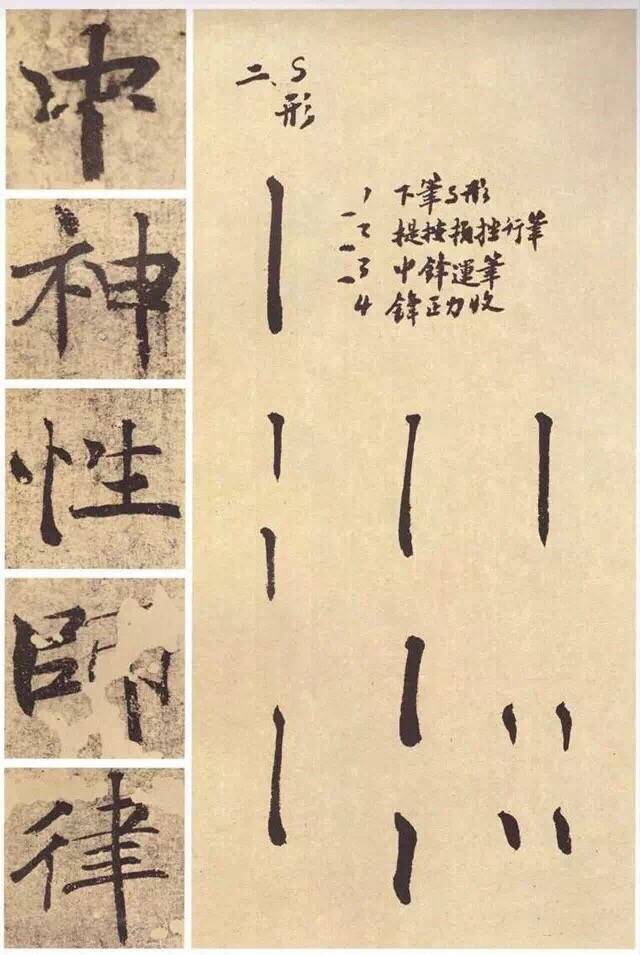 中
神
性
師
律
二、S
形
1 下筆S形
2 提按頓挫行筆
3 中鋒運筆
4 鋒正力收